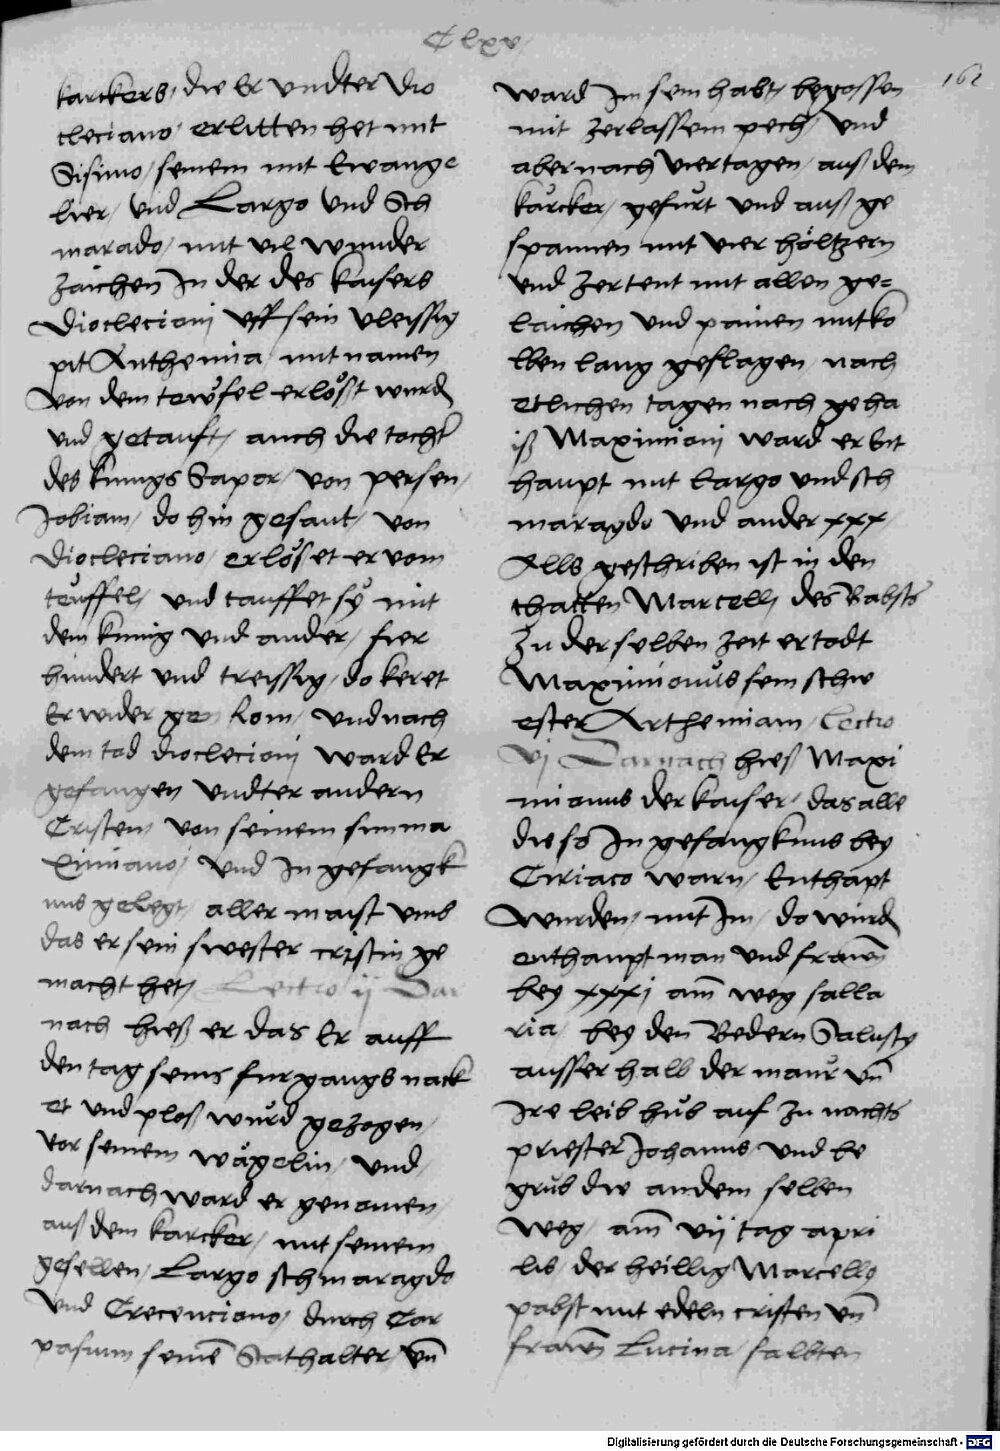 Clxv
162
karckers, die Er vndter Dio
cleciano, erlitten het mit
Sisimo, seinem mit Ewange
lier, vnd Largo vnd Sch
marado, mit vil wunder
zaichen In der des kaisers
Diocleciani vff sein vleissig
pit Anthemia mit namen
von dem tewfel erlößt wurd
vnd getauft, auch die tochter
des kunigs Sapor, von persen,
Jobiam, do hin gesant, von
Diocleciano, erlöset er vom
teuffel, vnd tauffet sy mit
dem kunig vnd ander, fier
hundert vnd treissig, do keret
Er wider gen Rom, vnd nach
dem tod Diocleciani ward Er
gefangen vndter andern
Cristen, von seinem sun ma
ximiano, vnd In gefangk
nus gelegt, aller maist vmb
das er sein swester cristin ge
macht het, Lectio ij Dar
nach hieß er das Er auff
den tag seins furgangs nack
et vnd ploß wurd gezogen,
vor seinem wägelin, vnd,
darnach ward er genomen,
auß dem karcker, mit seinem
gesellen, Largo schmaragdo
vnd Crecenciano, durch Car
pasium seinē Stathalter, vn̄
ward Im sein habt, begossen
mit zerlassem pech, vnd
aber nach vier tagen, auß dem
kärcker, gefurt vnd auß ge
spannen mit vier höltzern
vnd zertent mit allen ge=
laichen vnd painen mit ko
lben lang geslagen, nach
etlichen tagen nach geha
iß Maximiani ward er ent
haupt mit largo vnd sch
maragdo vnd ander xxx,
Alls geschriben ist in den
thatten Marcelli, des Babsts
zu der selben zeit ertodt
Maximianus sein schw
ester Arthemiam, Lectio
vj Darnach hies Maxi
mianus der kaiser, das alle
die so In gefangknus bey
Ciriaco warn, Enthapt
wurden, mit Im, do wurd
enthaupt man vnd frawen
bey xxxj am weg salla
ria, bey den Bedern Salusty
ausserhalb der maur vn̄
Ire leib hub auf zu nachts
priester Johanns, vnd be
grub die an dem selben
weg, am vij tag apri
lis, der heillig Marcells
pabst mit edeln cristen vn̄
frawen Lucina, salbten
Digitalisierung gefördert durch die Deutsche Forschungsgemeinschaft - DFG